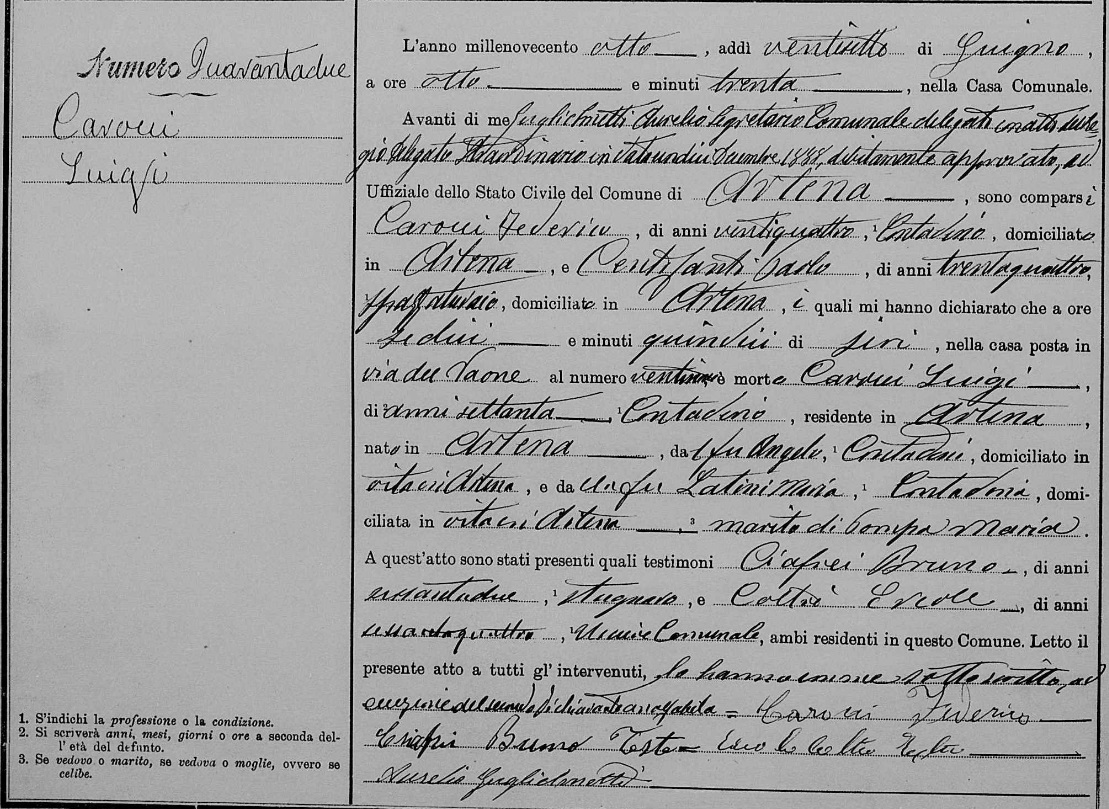 Numero Quarantadue
Carocci
Luigi
1. S'indichi la professione o la condizione.
2. Si scriverà anni, mesi, giorni o ore a seconda del-
l'età del defunto.
3. Se vedovo o marito, se vedova o moglie, ovvero se
celibe.
L'anno millenovecento otto, addì ventisette di Giugno,
a ore otto e minuti trenta, nella Casa Comunale.
Avanti di me Guglielmetti Aurelio Segretario Comunale delegato con atto del
Delegato Straordinario in data undici Dicembre 1888, debitamente approvato, ed
Uffiziale dello Stato Civile del Comune di Artena, sono comparsi
Carocci Federico, di anni ventiquattro, ¹ Contadino, domiciliato
in Artena, e Centofanti Paolo, di anni trentaquattro,
domiciliato in Artena, i quali mi hanno dichiarato che a ore
sedici e minuti quindici di jeri, nella casa posta in
via del al numero è morto Carocci Luigi,
di ² anni settanta, ¹ Contadino, residente in Artena,
nato in Artena, da fu Angelo, ¹ Contadini, domiciliato in
vita in Artena, e da la fu Latini Maria, ¹ Contadina, domi-
ciliata in vita in Artena, ³ marito di Pompa Maria.
A quest'atto sono stati presenti quali testimoni Ciafrei Bruno, di anni
sessantadue, ¹ stagnaro, e Coltrè Ercole, di anni
sessantaquattro, ¹ Usciere Comunale, ambi residenti in questo Comune. Letto il
presente atto a tutti gl' intervenuti, lo hanno meco sottoscritto, ad
eccezione del secondo dichiarante = Carocci Federico
Ciafrei Bruno Teste =
Aurelio Guglielmetti